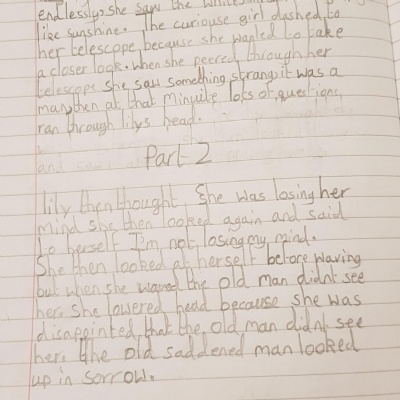 endlessly. She saw the
like sunshine. The curiouse girl dashed to
her telescope because she wanted to take
a closer look. when she peered through her
telescope she saw something strang. it was a
man, then at that minuite lots of questions
ran through lilys head.
Part-2
lily then thought, She was losing her
mind she then looked again and said
to herself I'm not losing my mind.
She then looked at herself before waving
but when she waved the old man didnt see
her. She lowered head because she was
disappointed, that the old man didnt see
her. the old saddened man looked
up in sorrow.